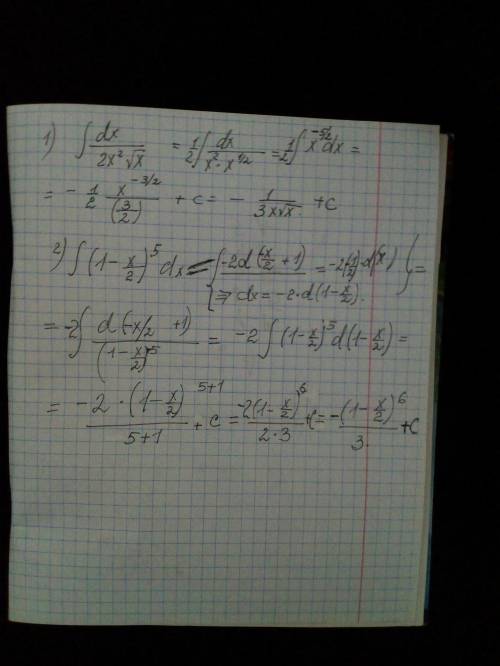 1) ∫ dx / (2x²√x) = 1/2 ∫ dx / (x² · x^(1/2)) = 1/2 ∫ x^(-5/2) dx =
= - 1/2 x^(-3/2) / (3/2) + c = - 1 / (3x√x) + c
2) ∫ (1 - x/2)^5 dx = { -2d(-x/2 + 1) = -2(-1/2)·d(x) } =
⇒ dx = -2·d(1 - x/2).
= -2 ∫ d(-x/2 + 1) / (1 - x/2)^-5 = -2 ∫ (1 - x/2)^5 d(1 - x/2) =
= -2 · (1 - x/2)^(5+1) / (5+1) + c = -2(1 - x/2)^6 / (2·3) + c = -(1 - x/2)^6 / 3 + c